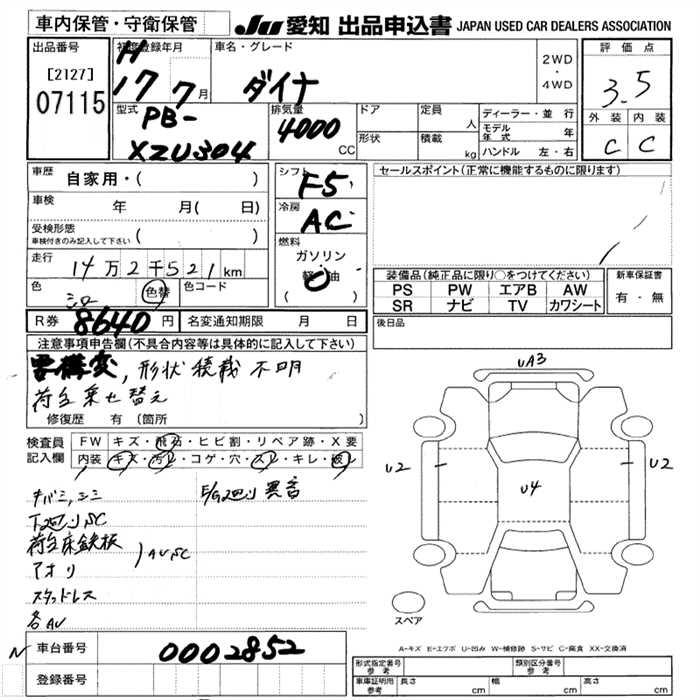 車内保管・守衛保管
JU 愛知 出品申込書 JAPAN USED CAR DEALERS ASSOCIATION
出品番号
[2127]
07115
初度登録年月
H
17 7月
車名・グレード
ダイナ
2WD
・
4WD
評価点
3.5
外装 内装
C C
型式
PB-
XZU304
排気量
4000
CC
ドア
形状
定員
人
積載
kg
ディーラー・並行
モデル年式 年
ハンドル 左・右
車歴
自家用・( )
車検
年 月( 日)
受検形態
車検付きのみ記入して下さい
( )
走行
14万2千521km
色
シロ
色替
色コード
シフト
F5
冷房
AC
燃料
ガソリン
軽油
( )
セールスポイント(正常に機能するものに限ります)
装備品(純正品に限り○をつけてください)
PS PW エアB AW
SR ナビ TV カワシート
新車保証書
有・無
R券 8640円
名変通知期限 月 日
後日品
注意事項申告欄(不具合内容等は具体的に記入して下さい)
要構変, 形状積載不明
荷台乗せ替え
修復歴 有 (箇所 )
検査員記入欄
FW キズ・飛石・ヒビ割・リペア跡・X要
内装 キズ・汚レ・コゲ・穴・スレ・キレ・破レ
キバミ,シミ
E/G廻り異音
下廻りSC
荷台床鉄板
アオリ
AU,SC
スタッドレス
各AU
UA3
U2
U4
U2
スペア
A-キズ E-エクボ U-凹み W-補修跡 S-サビ C-腐食 XX-交換済
N
車台番号
0002852
登録番号
形式指定番号
参考
類別区分番号
参考
車庫証明用
参考
長さ cm
幅 cm
高さ cm